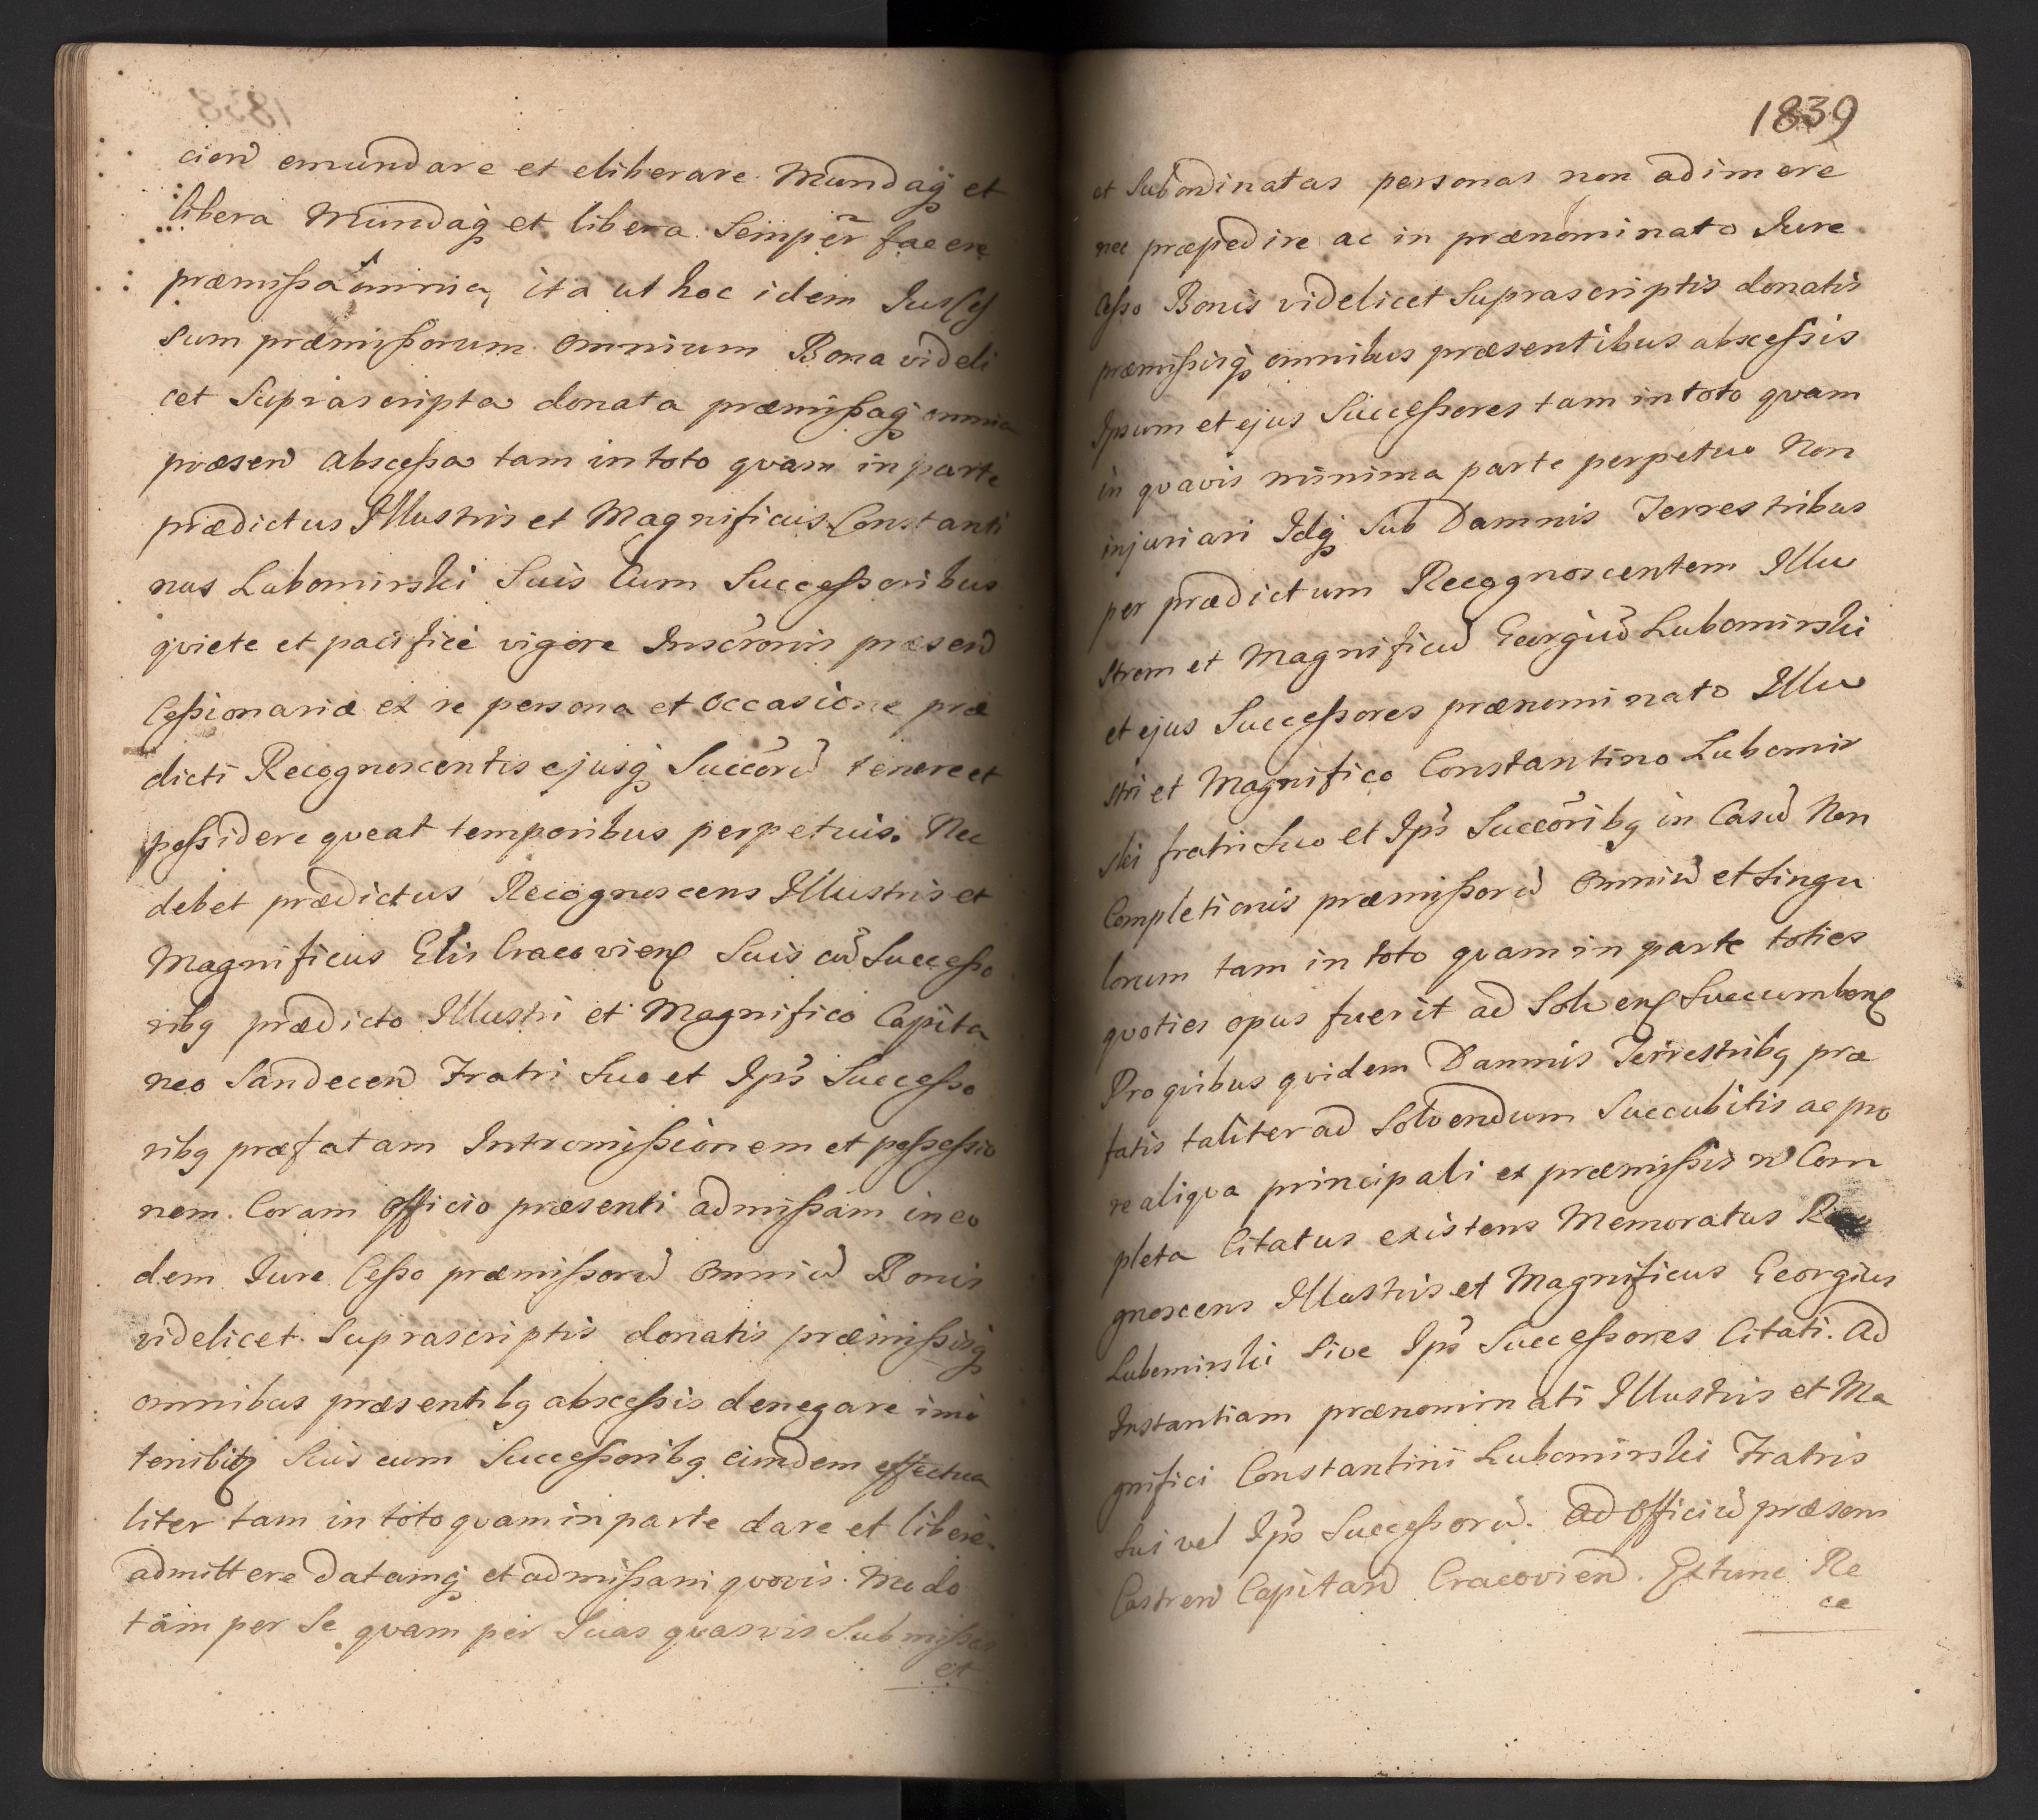 cien emundare et eliberare Mundaq̃ et
libera Mundaq̃ et libera Semper facere
præmissa omnia, ita ut hoc idem Jus Ces
sum præmissorum omnium Bona videli
cet Suprascripta donata præmissaq̃ omnia
præsen abscessa tam in toto qvam in parte
prædictus Illustris et Magnificus Constanti
nus Lubomirski Suis Cum Successoribus
qviete et pacificè vigore Inscrõnis præsen
Cessionariæ ex re persona et occasione præ
dicti Recognoscentis ejusq̃ Succõrũ tenere et
possidere qveat temporibus perpetuis. Nec
debet prædictus Recognoscens Illustris et
Magnificus Elis Cracovien Suis cũ Successo
ribq prædicto Illustri et Magnifico Capita
neo Sandecen Fratri Suo et Ips̃ Successo
ribq præfatam Intromissionem et possessio
nem. Coram officio præsenti admissam in eo
dem Jure Cesso præmissorũ omniũ Bonis
videlicet Suprascriptis donatis præmissisq̃
omnibus præsentibq abscessis denegare imò
tenebitq Suis cum Successoribq eimdem effectua
liter tam in toto qvam in parte dare et liberè
admittere Datamq̃ et admissam qvovis Modo
tam per Se qvam per Suas qvasvis Submissas
et
1838
1839
et Subordinatas personas non adimere
nec præpedire ac in prænominato Jure
Cesso Bonis videlicet Suprascriptis donatis
præmissisq̃ omnibus præsentibus abscessis
Ipsum et ejus Successores tam in toto qvam
in qvavis minima parte perpetuo Non
injuriari Idq̃ Sub Damnis Terrestribus
per prædictum Recognoscentem Illu
strem et Magnificũ Georgiũ Lubomirski
et ejus Successores prænominato Illu
stri et Magnifico Constantino Lubomir
ski fratri Suo et Ips̃ Succõribq in Casũ Non
Completionis præmissorũ omniũ et Singu
lorum tam in toto qvam in parte toties
qvoties opus fuerit ad Solven Succumben
Pro qvibus qvidem Damnis Terrestribq præ
fatis taliter ad Solvendum Succubitis ac pro
re aliqva principali ex præmissis ñ Com
pleta Citatus existens Memoratus Reco
gnoscens Illustris et Magnificus Georgius
Lubomirski Sive Ips̃ Successores Citati. Ad
Instantiam prænominati Illustris et Ma
gnifici Constantini Lubomirski Fratris
Sui vel Ips̃ Successorũ. Ad officiũ præsens
Castren Capitan Cracovien. Extunc Re
ce